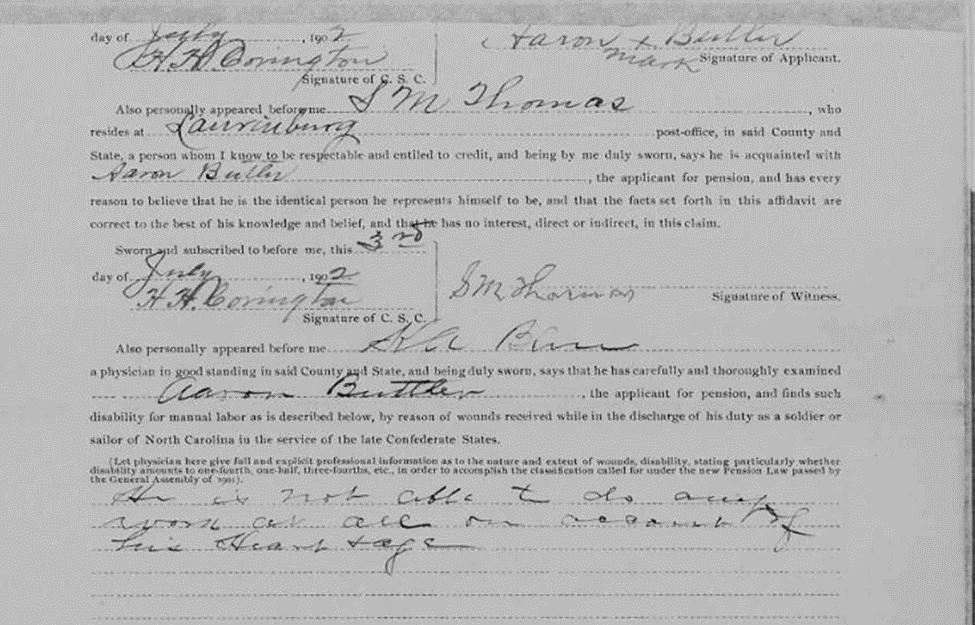 day of July, 1902
H. H. Covington
Signature of C. S. C.
Aaron x Butler
mark Signature of Applicant.
Also personally appeared before me S M Thomas, who
resides at Laurinburg post-office, in said County and
State, a person whom I know to be respectable and entitled to credit, and being by me duly sworn, says he is acquainted with
Aaron Butler, the applicant for pension, and has every
reason to believe that he is the identical person he represents himself to be, and that the facts set forth in this affidavit are
correct to the best of his knowledge and belief, and that he has no interest, direct or indirect, in this claim.
Sworn and subscribed to before me, this 3rd
day of July, 1902
H. H. Covington
Signature of C. S. C.
S M Thomas Signature of Witness.
Also personally appeared before me
a physician in good standing in said County and State, and being duly sworn, says that he has carefully and thoroughly examined
Aaron Buttler, the applicant for pension, and finds such
disability for manual labor as is described below, by reason of wounds received while in the discharge of his duty as a soldier or
sailor of North Carolina in the service of the late Confederate States.
(Let physician here give full and explicit professional information as to the nature and extent of wounds, disability, stating particularly whether
disability amounts to one-fourth, one-half, three-fourths, etc., in order to accomplish the classification called for under the new Pension Law passed by
the General Assembly of 1901).
He is not able to do any
work at all on account of
his Heart & age